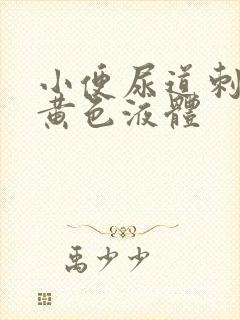 小便尿道刺
黄色液體
禹少少